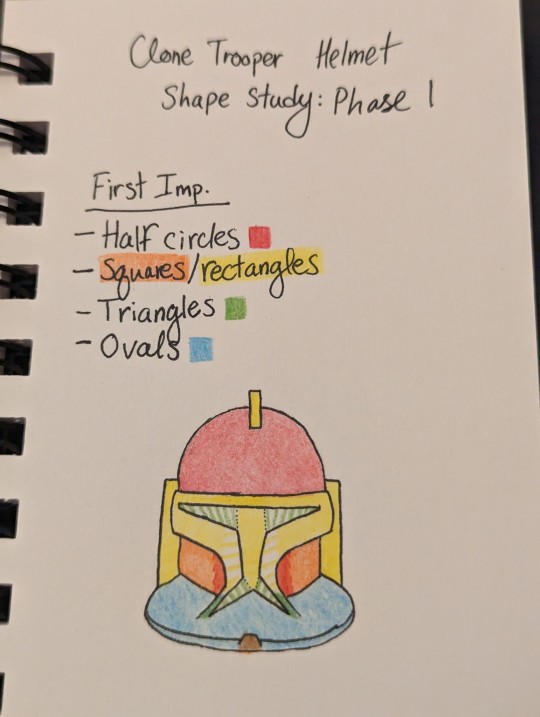 Clone Trooper Helmet
Shape Study: Phase 1
First Imp.
- Half circles
- Squares/rectangles
- Triangles
- Ovals